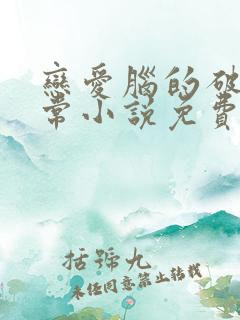 戀愛腦的破
常小說免費
括號九
未經同意禁止轉載